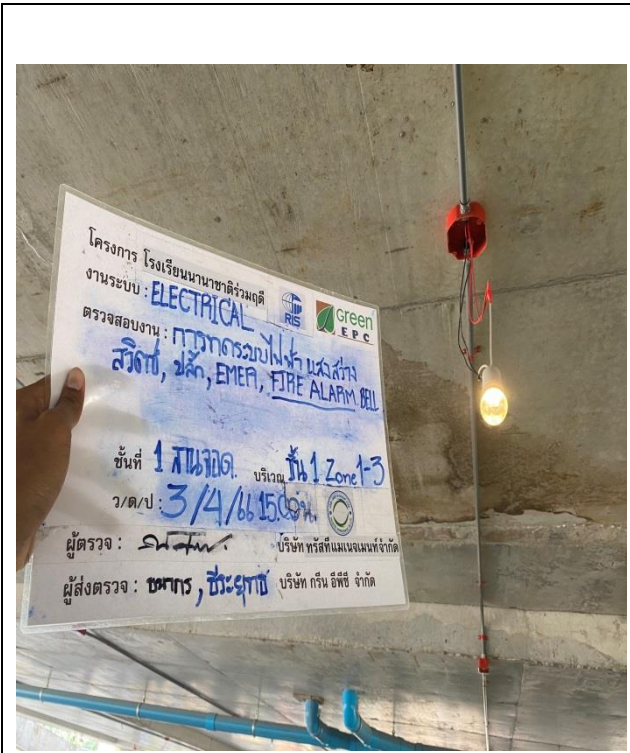 โครงการ โรงเรียนนานาชาติร่วมฤดี
งานระบบ : ELECTRICAL
RIS
Green
EPC
ตรวจสอบงาน : การทดระบบไฟฟ้า แสงสว่าง
สวิตซ์, ปลั๊ก, EMER, FIRE ALARM BELL
ชั้นที่ 1 ลานจอด. บริเวณ ชั้น 1 Zone 1-3
ว/ด/ป : 3/4/66 15.00น.
ผู้ตรวจ : บริษัท ทรัสที่แมเนจเมนท์จำกัด
ผู้ส่งตรวจ : ธนากร, ธีระยุทธ บริษัท กรีน อีพีซี จำกัด